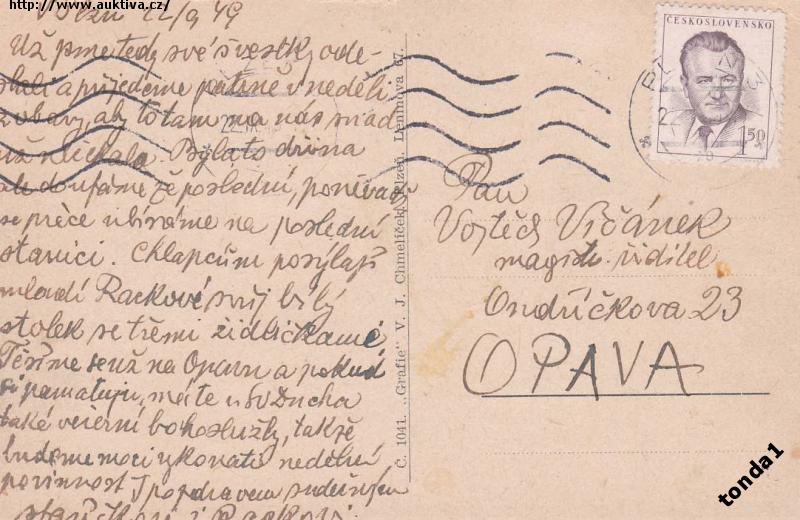 http://www.auktiva.cz/
22/9 49
Už jsme tedy své švestky ode-
slali a přijedeme patrně v neděli
z obavy, aby to tam na nás snad
už nečekalo. Byla to dřina
ale doufáme že poslední, poněvadž
se přece ubíráme na poslední
stanici. Chlapcům posýlají
mladí Rackové svůj bílý
stolek se třemi židličkami
Těšíme se už na Opavu a pokud
si pamatuju, máte u Sv Ducha
také večerní bohoslužby, takže
budeme moci vykonati nedělní
povinnost S pozdravem
staříčkovi i
Č. 1041. „Grafie" V. J. Chmelíček, Plzeň, Leninova 67.
ČESKOSLOVENSKO
1.50
Pan
Vojtěch Vičánek
magistr. ředitel
Ondříčkova 23
OPAVA
tonda1